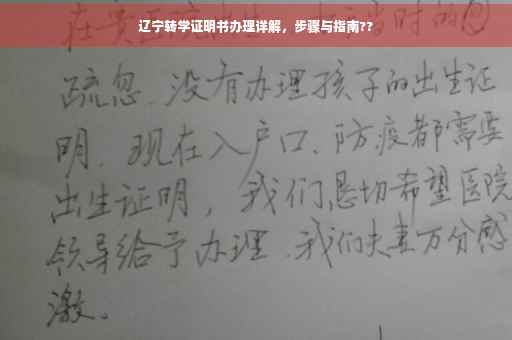 辽宁转学证明书办理详解，步骤与指南??
在贵医院 当时的
疏忽、没有办理孩子的出生证
明、现在入户口、防疫都需要
出生证明，我们恳切希望医院
领导给予办理、我们夫妻万分感
激。